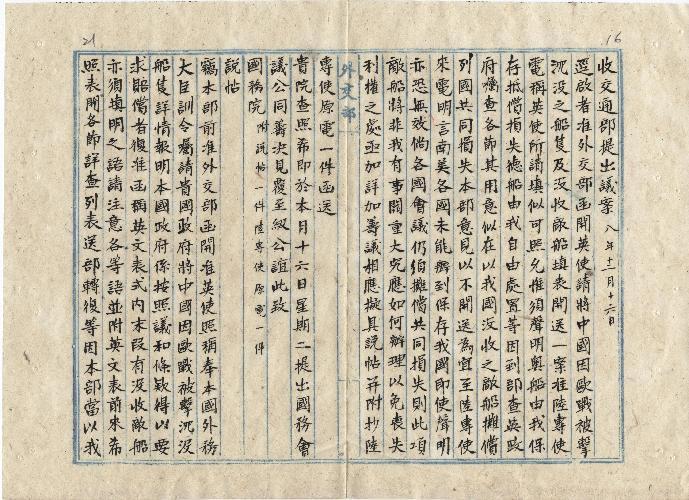 16
收交通部提出議案 八年十二月十六日
逕啟者准外交部函開英使請將中國因歐戰被擊
沉沒之船隻及沒收敵船填表開送一案准陸專使
電稱英使所請填似可照允惟須聲明奧船由我保
存抵償損失德船由我自由處置等因到部查英政
府囑查各節其用意似在以我國沒收之敵船攤償
列國共同損失本部意見以不開送為宜至陸專使
來電明言南美各國未能辦到保存我國即使聲明
亦恐無效倘各國會議仍須攤償共同損失則此項
敵船將非我有事關重大究應如何辦理以免喪失
利權之處亟加詳加籌議相應擬具說帖并附抄陸
外交部
專使原電一件函送
貴院查照希即於本月十六日星期二提出國務會
議公同籌決見覆至級公誼此致
國務院 附說帖一件陸專使原電一件
說帖
竊本部前准外交部函開准英使照稱奉本國外務
大臣訓令囑請貴國政府將中國因歐戰被擊沉沒
船隻詳情報明本國政府係按照議和條款得以要
求賠償者復准函稱英文表式內末段有沒收敵船
亦須填明之語請注意各等語並附英文表前來希
照表開各節詳查列表送部轉復等因本部當以我
21